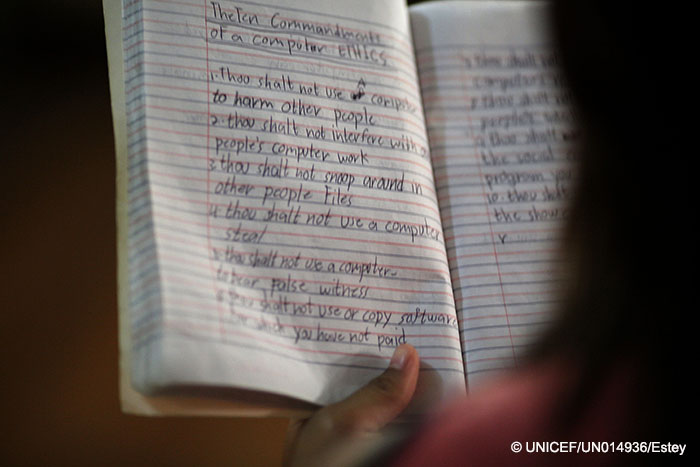 The Ten Commandments
of a computer ETHICS
1. Thou shalt not use A
to harm other people
2. thou shalt not interfere with
people's computer work
3. thou shalt not snoop around in
other people Files
4. thou shalt not use a computer
steal
5. thou shalt not use a computer
to bear palse witness
6. thou shalt not use or copy software
for which you have not paid
thou shalt
computer
thou shalt
people's
thou shalt
the social
program you
10. thou shalt
the show
© UNICEF/UN014936/Estey